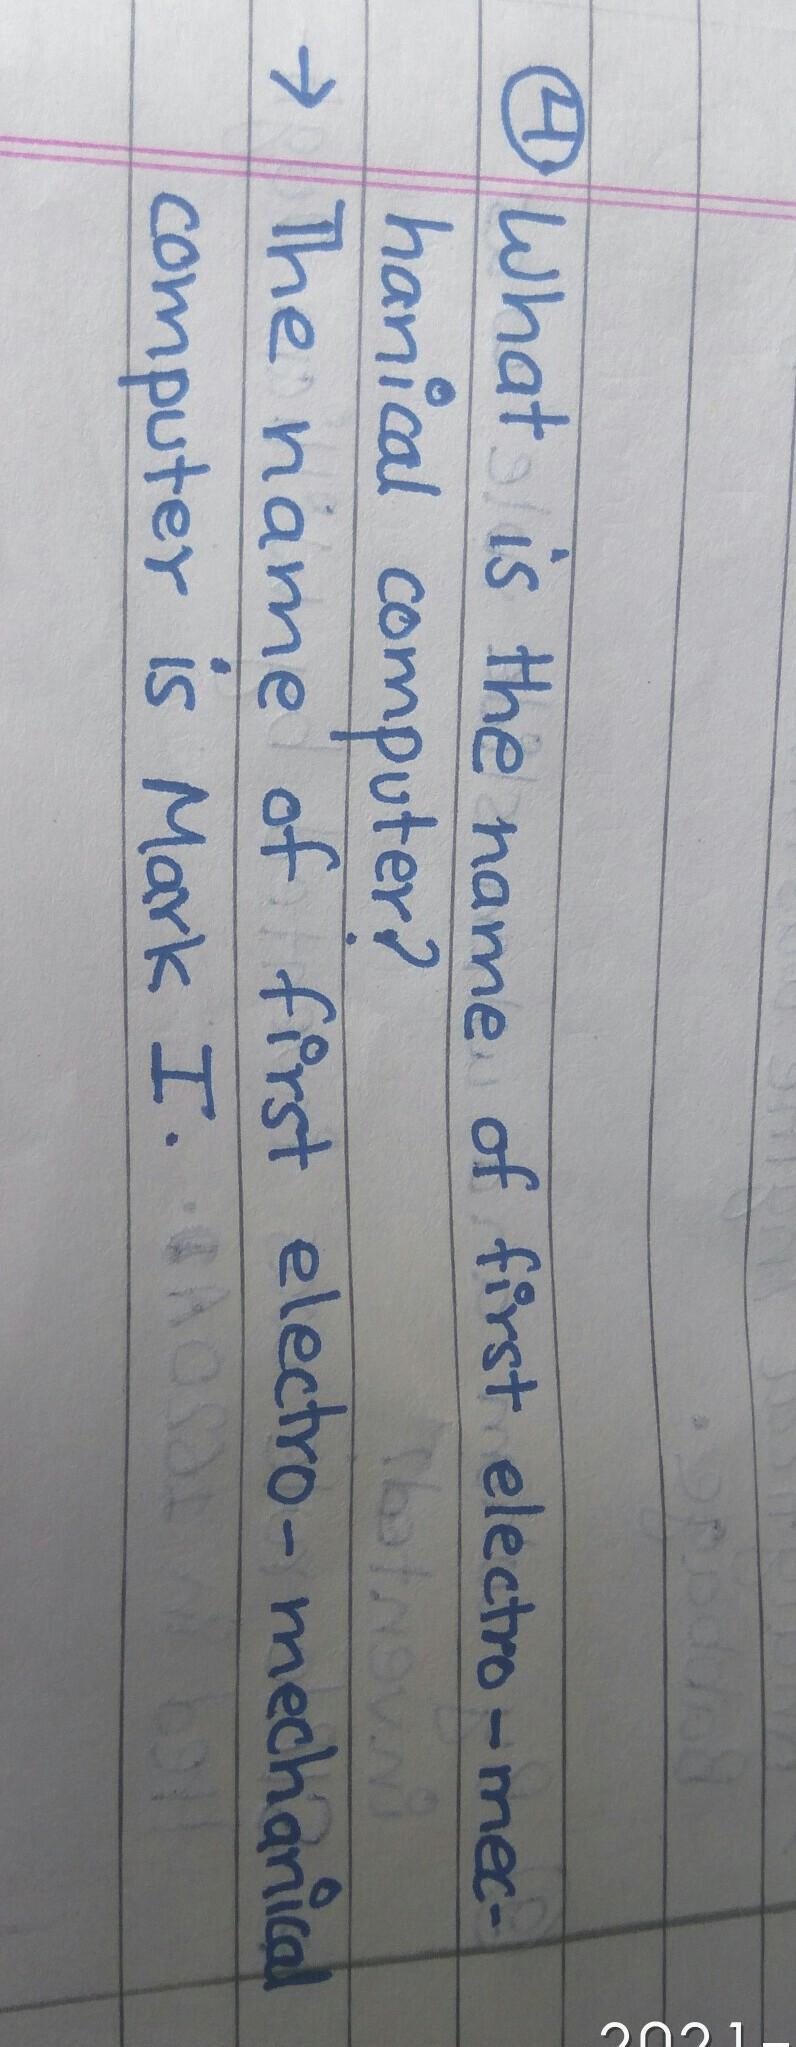 ④ What is the name of first electro-mec-
hanical computer?
→ The name of first electro-mechanical
computer is Mark I.
2021-